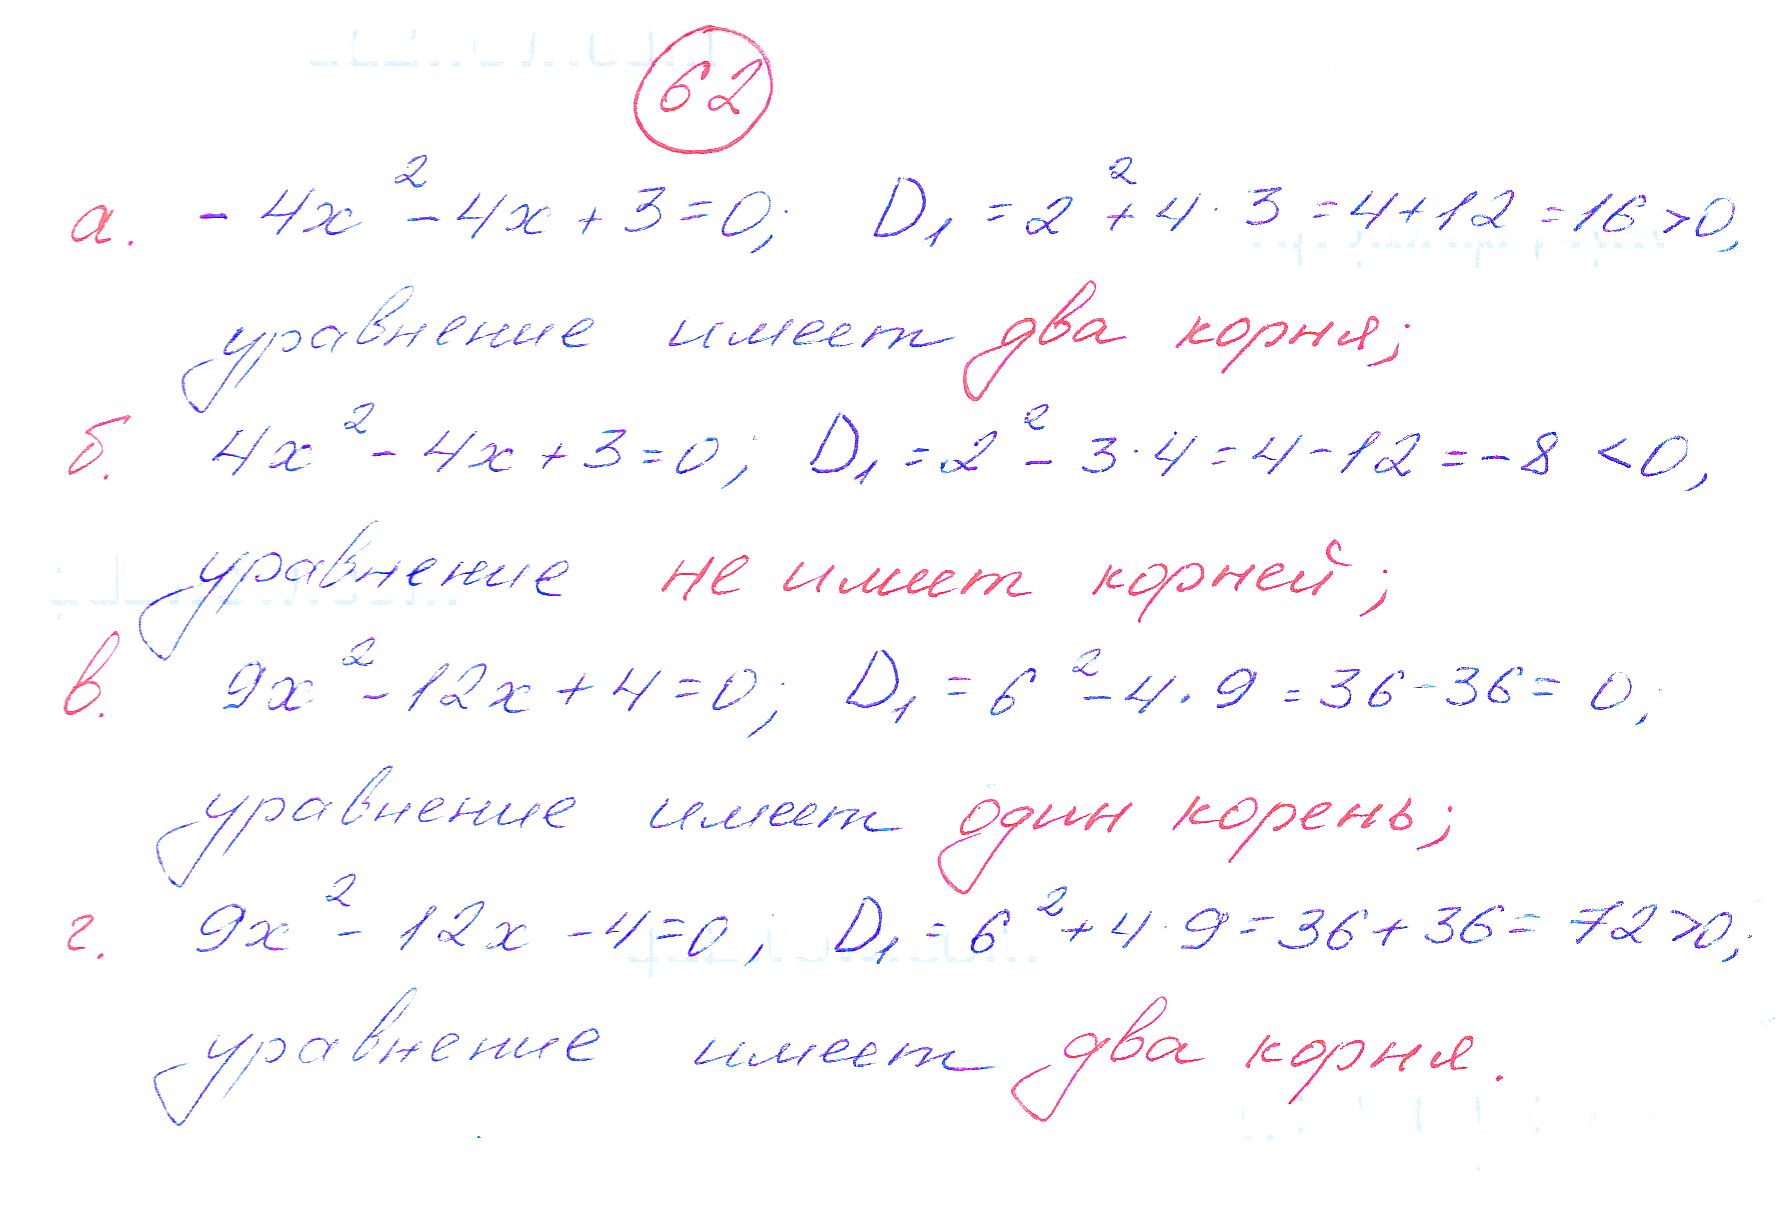 62
а. - 4x² - 4x + 3 = 0; D₁ = 2² + 4 · 3 = 4 + 12 = 16 > 0,
уравнение имеет два корня;
б. 4x² - 4x + 3 = 0; D₁ = 2² - 3 · 4 = 4 - 12 = - 8 < 0,
уравнение не имеет корней;
в. 9x² - 12x + 4 = 0; D₁ = 6² - 4 · 9 = 36 - 36 = 0,
уравнение имеет один корень;
г. 9x² - 12x - 4 = 0; D₁ = 6² + 4 · 9 = 36 + 36 = 72 > 0;
уравнение имеет два корня.